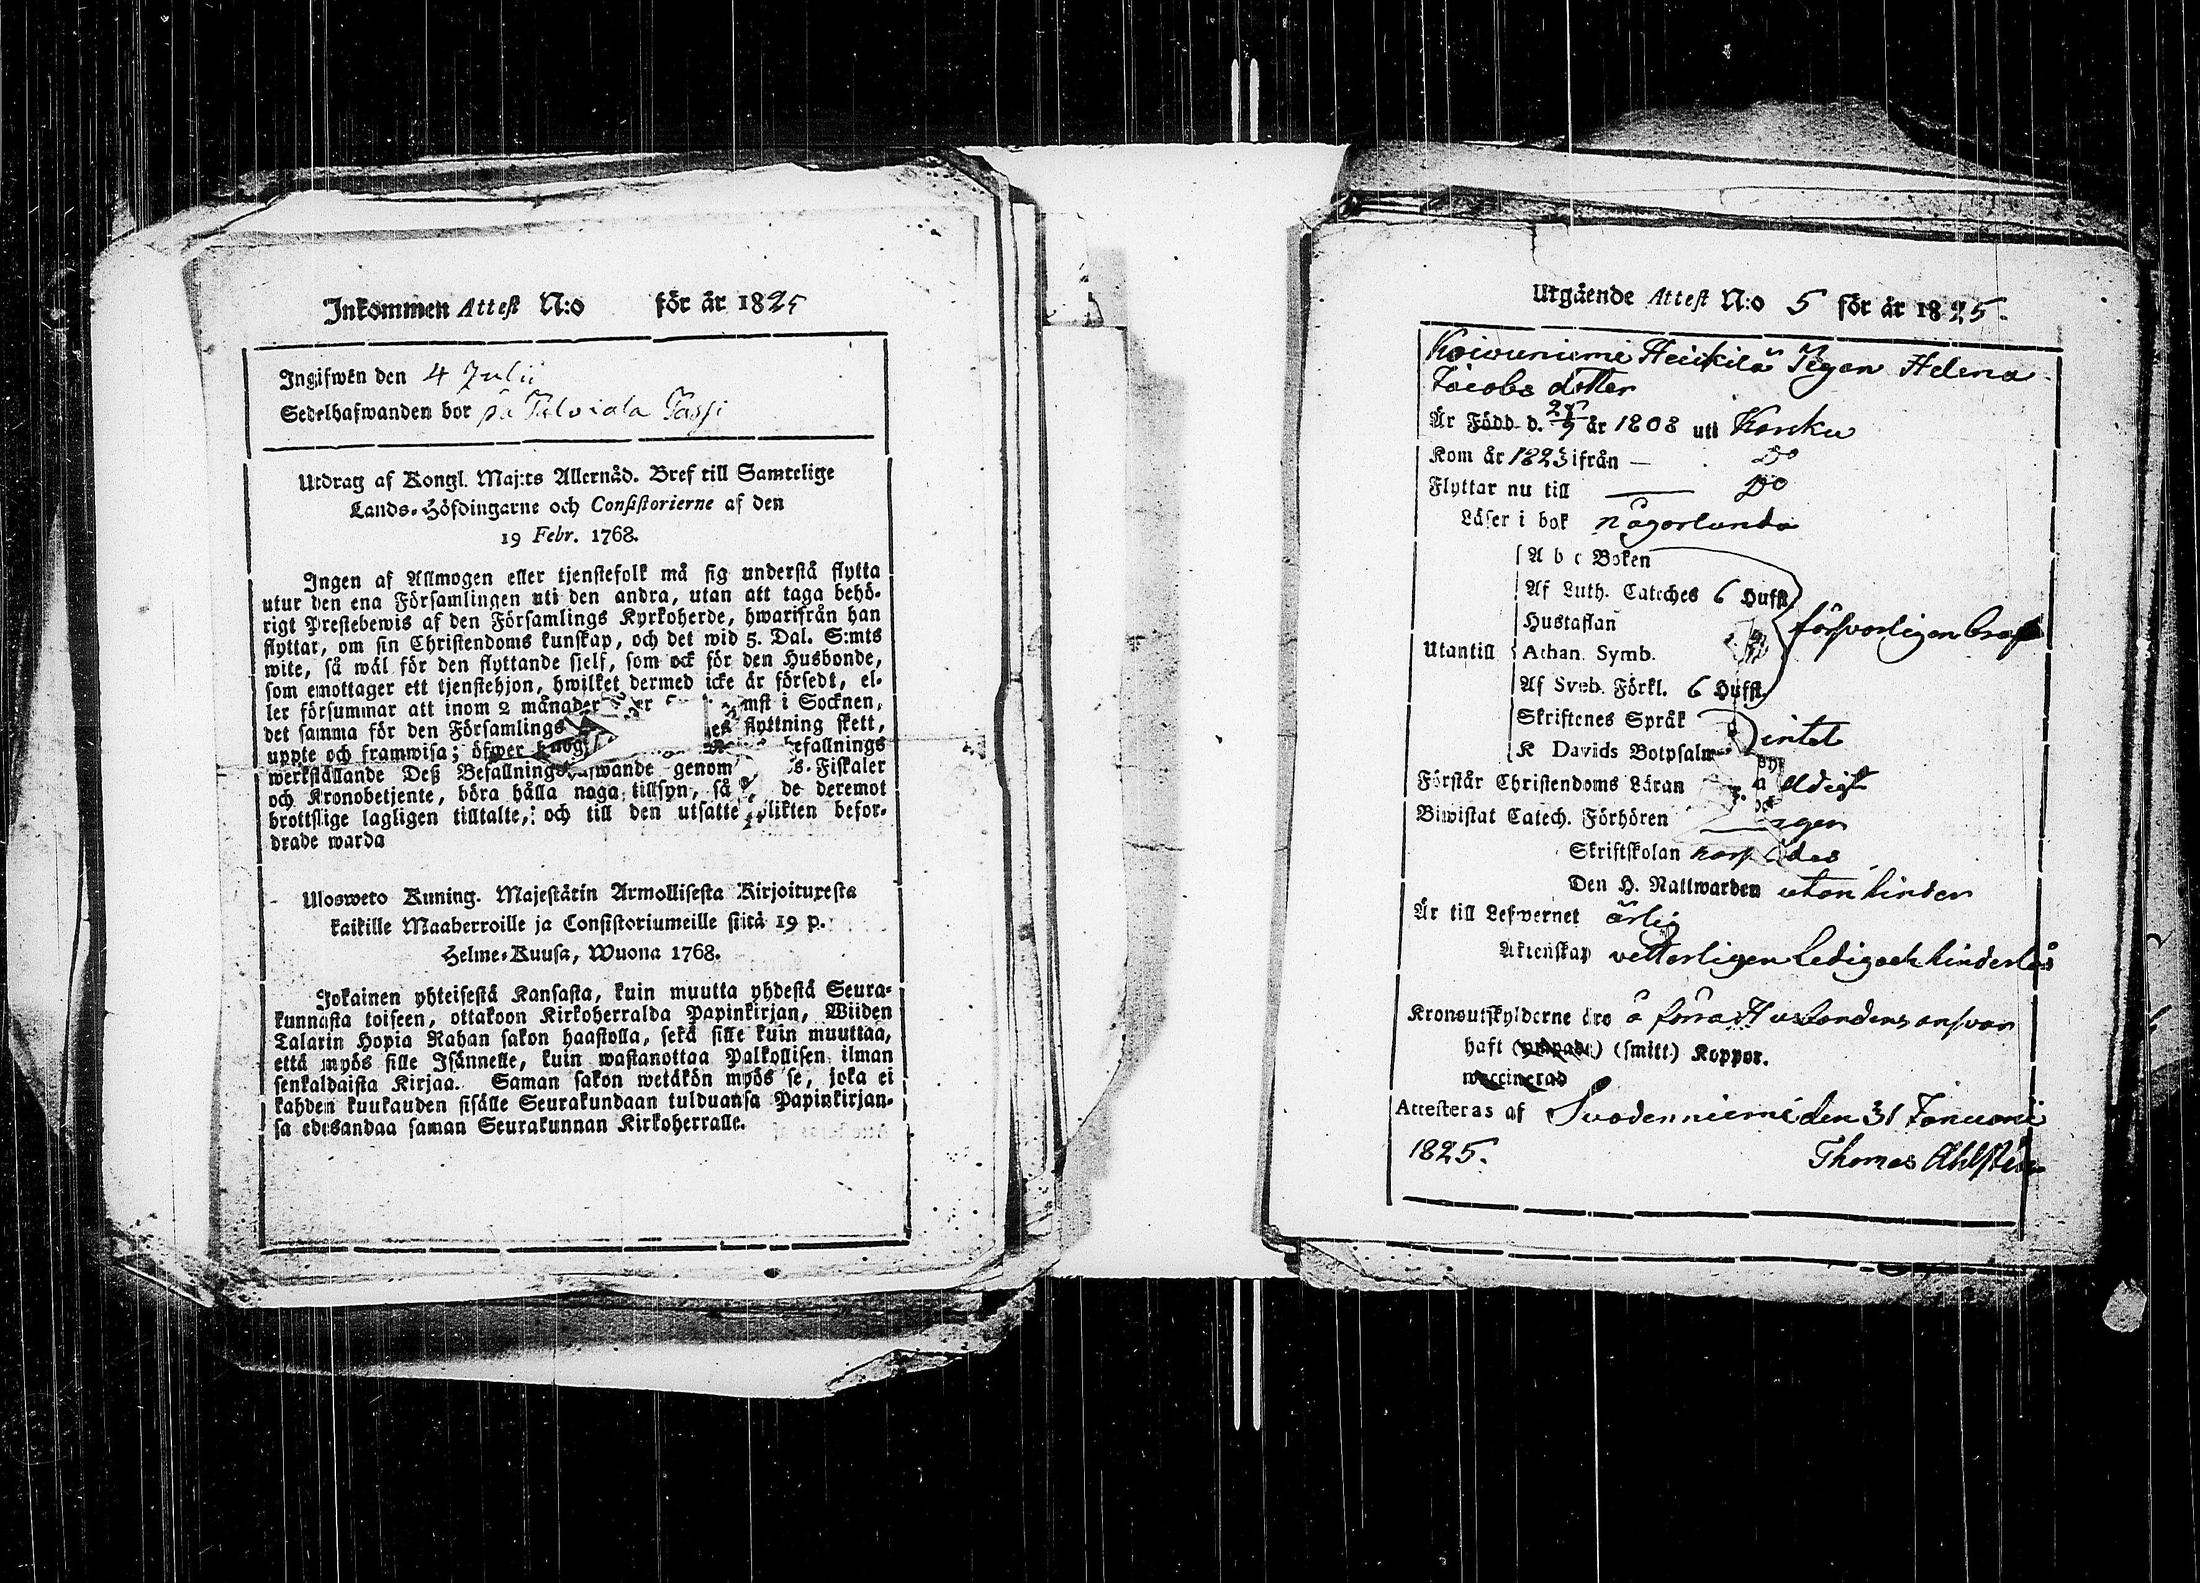 Inkommen Attest N:o för år 1825
Ingifwen den 4 Julii
Sedelhafwanden bor på
Utdrag af Kongl. Maj:ts Allernåd. Bref till Samtelige
Lands-Höfdingarne och Consistorierne af den
19 Febr. 1768.
Ingen af Allmogen eller tjenstefolk må sig understå flytta
utur den ena Församlingen uti den andra, utan att taga behö-
rigt Prestebewis af den Församlings Kyrkoherde, hwarifrån han
flyttar, om sin Christendoms kunskap, och det wid 5. Dal. S:mts
wite, så wäl för den flyttande sjelf, som ock för den Husbonde,
som emottager ett tjenstehjon, hwilket dermed icke är försedt, el-
ler försummar att inom 2 månader i Socknen,
det samma för den Församlings flyttning skett,
uppte och framwisa; öfwer befallnings
werkställande Deß genom Fiskaler
och Kronobetjente, böra hålla noga tillsyn, så de deremot
brottslige lagligen tilltalte, och till den utsatte plikten befor-
drade warda
Ulosweto Kuning. Majestätin Armollisesta Kirjoituxesta
kaikille Maaherroille ja Consistoriumeille siitä 19 p.
Helme-Kuusa, Wuona 1768.
Jokainen yhteisestä Kansasta, kuin muutta yhdestä Seura-
kunnasta toiseen, ottakoon Kirkoherralda Papinkirjan, Wiiden
Talarin Hopia Rahan sakon haastolla, sekä sille kuin muuttaa,
että myös sille Isännelle, kuin wastanottaa Palkollisen ilman
senkaldaista Kirjaa. Saman sakon wetäkön myös se, joka ei
kahden kuukauden sisälle Seurakundaan tulduansa Papinkirjan-
sa edesandaa saman Seurakunnan Kirkoherralle.
Utgående Attest N:o 5 för år 1825.
Koivuniemi Heickilä Pigan Helena
Jacobs dotter
Är Född d. år 1808 uti Karcku
Kom år 1823 ifrån — Do
Flyttar nu till — Do
Läser i bok någorlunda
A b c Boken
Af Luth. Cateches 6 Hufst.
Hustaflan försvarligen
Utantill Athan. Symb.
Af Sveb. Förkl. 6 Hufst.
Skriftenes Språk
K Davids Botpsalm intet
Förstår Christendoms Läran
Biwistat Catech. Förhören
Skriftskolan
Den H. Nattwarden utan hinder
Är till Lefwernet ärlig
Äktenskap vetterligen Ledig och hinderlös
Kronoutskylderne äro å förra Husbondens ansvar
haft (ympade) (smitt) Koppor.
waccinerad
Attesteras af Suodenniemi den 31 Januarii
1825. Thomas Ahlstén